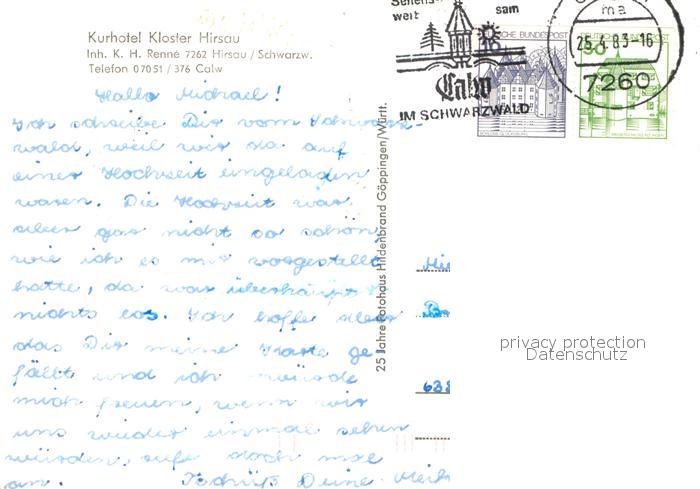 Kurhotel Kloster Hirsau
Inh. K. H. Renné 7262 Hirsau / Schwarzw.
Telefon 07051 / 376 Calw
Hallo Michael!
Ich schreibe Dir vom Schwarz-
wald, weil wir da auf
einer Hochzeit eingeladen
waren. Die Hochzeit war
aber gar nicht so schön
wie ich es mir vorgestellt
hatte, da war überhaupt
nichts los. Ich hoffe aber
das Dir meine Karte ge
fällt und ich würde
mich freuen, wenn wir
uns wieder einmal sehen
würden, rufe doch mal
an. Tschüß Deine
25 Jahre Fotohaus Hildenbrand Göppingen/Württ.
weit sam
Calw
IM SCHWARZWALD
DEUTSCHE BUNDESPOST
25.4.83-16
7260
privacy protection
Datenschutz